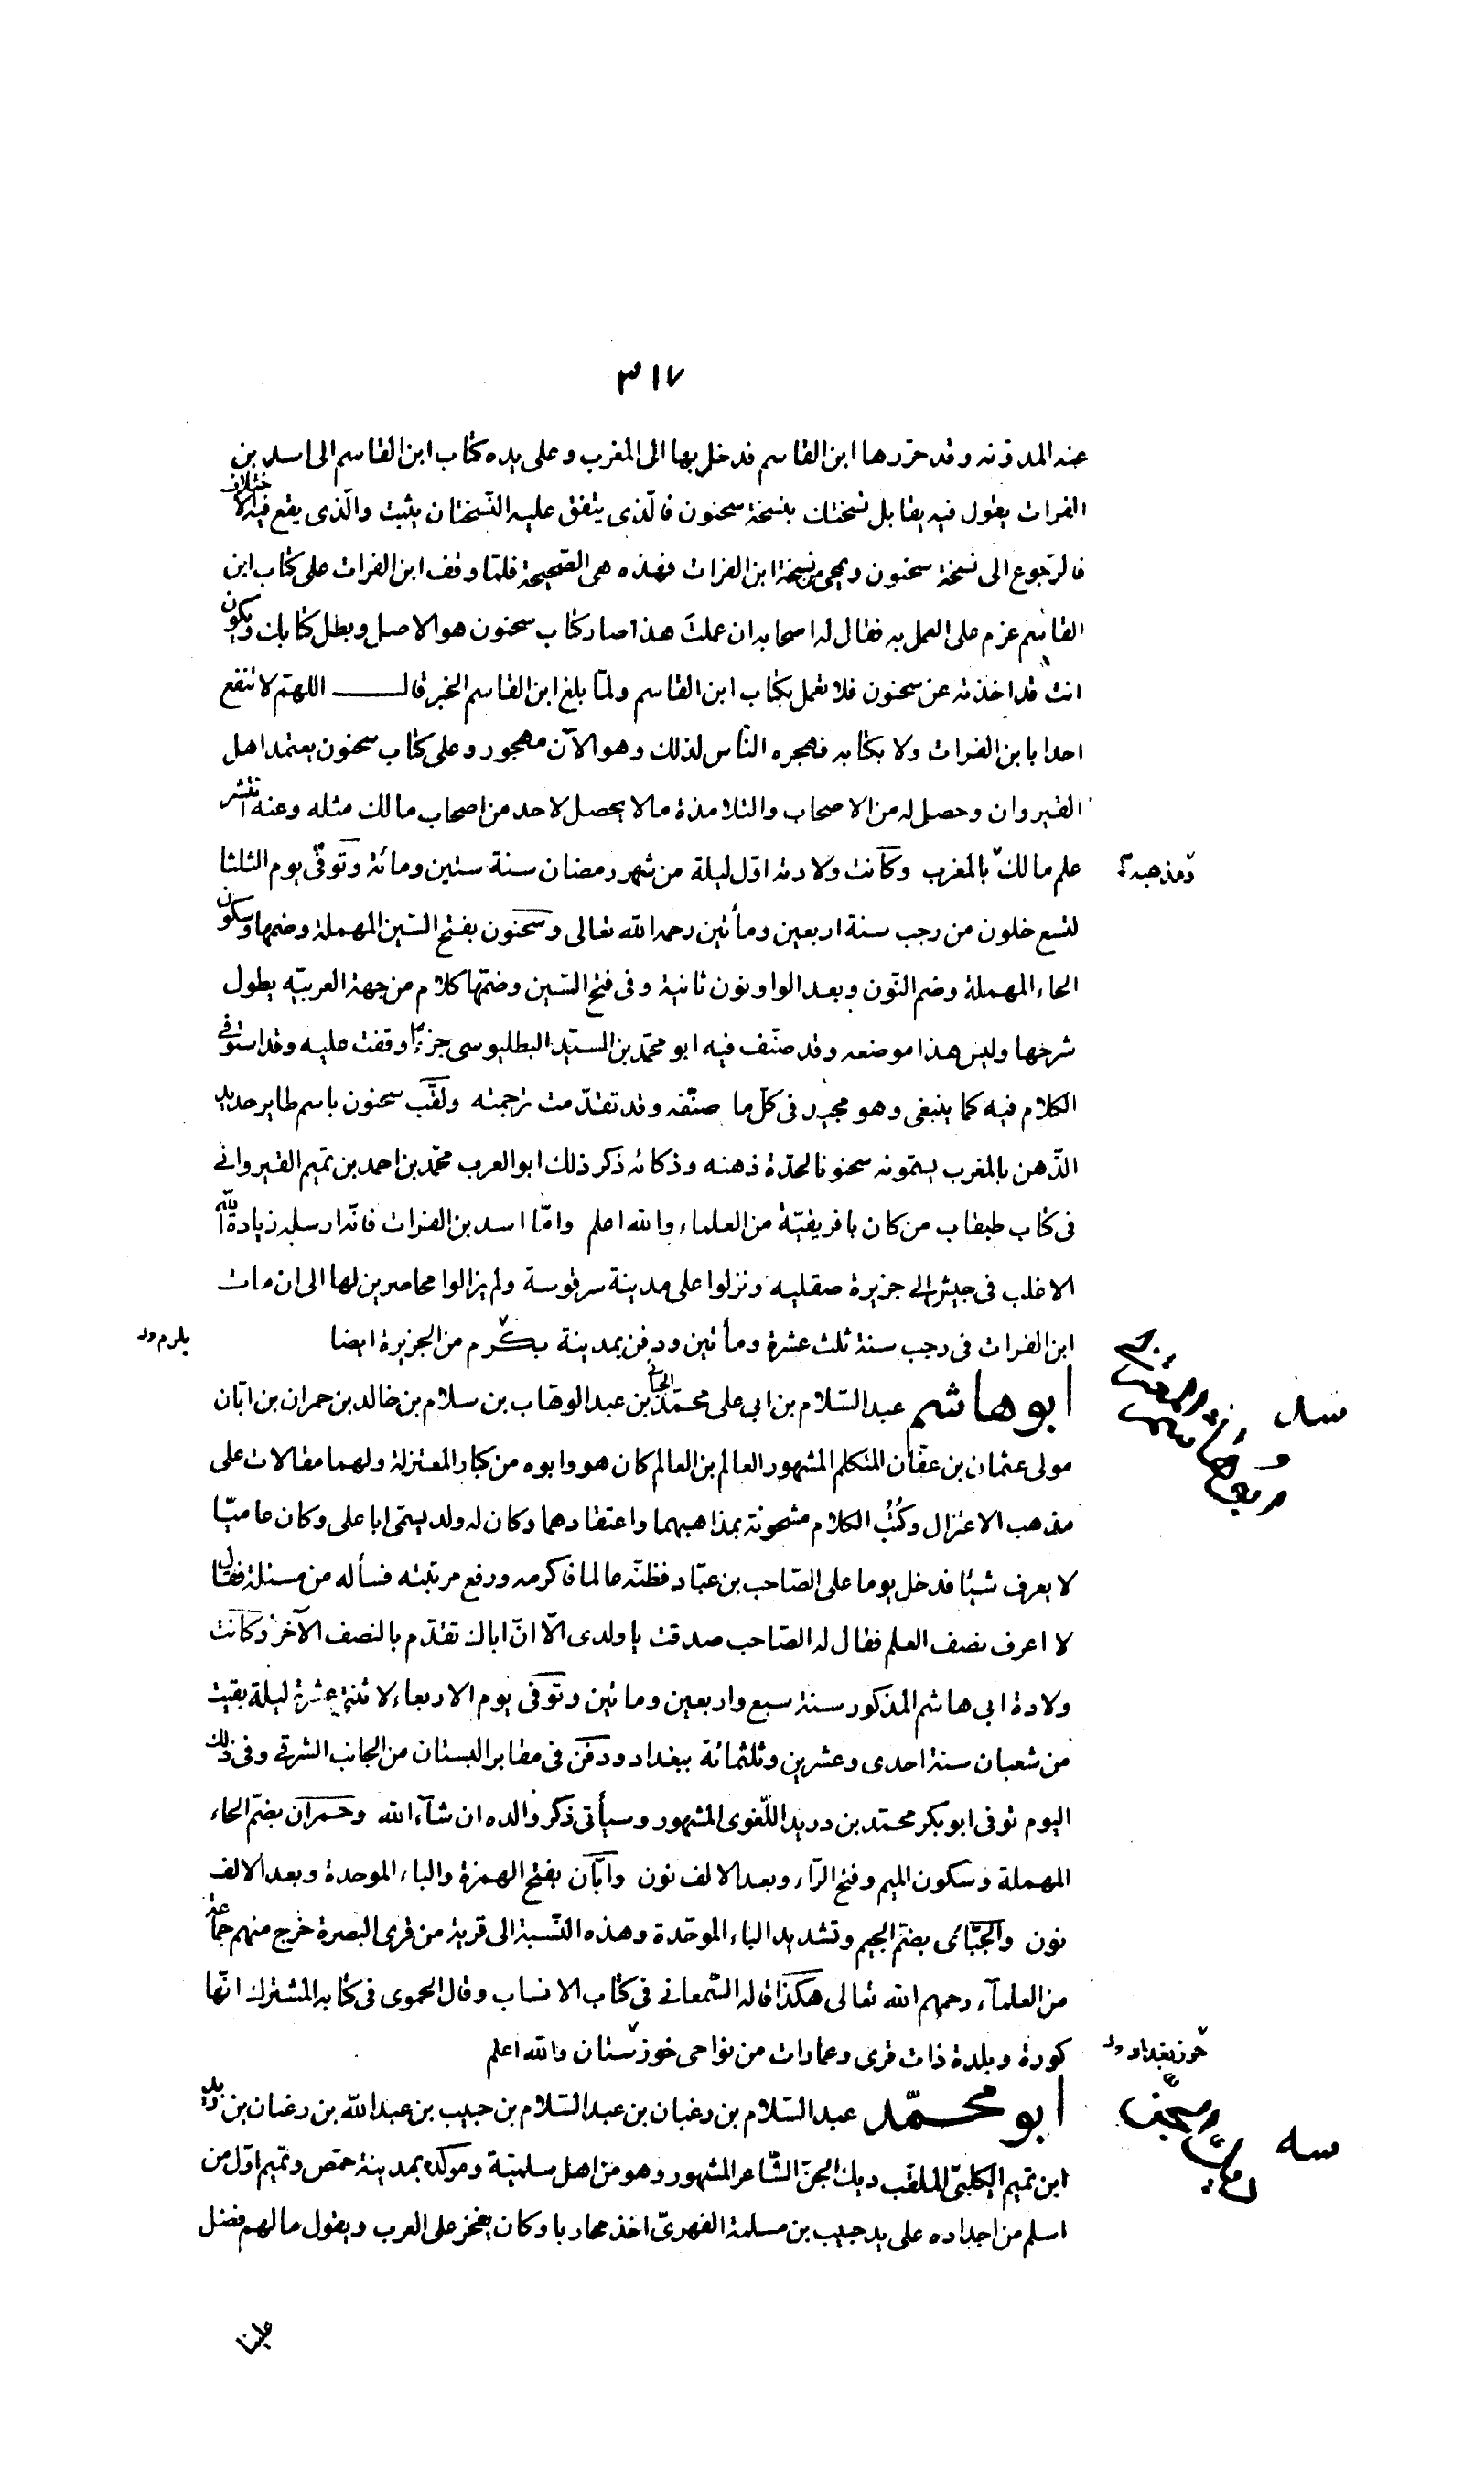 ٣١٧
عنه المدوّنه وقد حرّرها ابن القاسم فدخل بها الى المغرب وعلى يده كتاب ابن القاسم الى اسد بن
الفرات يقول فيه يقابل نسختك بنسخة سحنون فالّذى يتفق عليه النّسختان يثبت والّذى يقع فيه الاختلاف
فالرّجوع الى نسخة سحنون ويمحى من نسخة ابن الفرات فهذه هى الصّحيحة فلمّا وقف ابن الفرات على كتاب ابن
القاسم عزم على العمل به فقال له اصحابه ان عملتَ هذا صار كتاب سحنون هو الاصل وبطل كتابك ويكون
انت قد اخذته عن سحنون فلا تعمل بكتاب ابن القاسم ولمّا بلغ ابن القاسم الخبر قال اللهمّ لا تنفع
احدا بابن الفرات ولا بكتابه فهجره النّاس لذلك وهو الآن مهجور وعلى كتاب سحنون يعتمد اهل
القيروان وحصل له من الاصحاب والتلامذة مالا يحصل لاحد من اصحاب مالك مثله وعنه انتشر
علم مالك بالمغرب وكانت ولادته اوّل ليلة من شهر رمضان سنة ستين ومائة وتوفّى يوم الثلثا
ومذهبه
لتسع خلون من رجب سنة اربعين ومأتين رحمه الله تعالى وسحنون بفتح السّين المهملة وضمها وسكون
الحاء المهملة وضم النّون وبعد الواو نون ثانية وفى فتح السّين وضمّها كلام من جهة العربيّه يطول
شرحها وليس هذا موضعه وقد صنّف فيه ابو محمّد بن السيّد البطليوسى جزءًا وقفت عليه وقد استوفى
الكلام فيه كما ينبغى وهو مجيد فى كلّ ما صنّفه وقد تقدّمت ترجمته ولقّب سحنون باسم طاير حديد
الذّهن بالمغرب يسمّونه سحنونا لحدّة ذهنه وذكائه ذكر ذلك ابو العرب محمّد بن احمد بن تميم القيروانى
فى كتاب طبقاب من كان بافريقيّة من العلماء والله اعلم وامّا اسد بن الفرات فانّه ارسله زيادة الله
الاغلب فى جيش الى جزيرة صقليه ونزلوا على مدينة سرقوسة ولم يزالوا محاصرين لها الى ان مات
ابن الفرات فى رجب سنة ثلث عشرة ومأتين ودفن بمدينة بكرم من الجزيرة ايضا
بلرم
ابو هاشم عبد السّلام بن ابى على محمّد الجبائى بن عبد الوهّاب بن سلام بن خالد بن حمران بن ابّان
مولى عثمان بن عفّان المتكلم المشهور العالم بن العالم كان هو وابوه من كبار المعتزلة ولهما مقالات على
مذهب الاعتزال وكُتُب الكلام مشحونة بمذاهبهما واعتقادهما وكان له ولد يسمّى ابا على وكان عاميّا
لا يعرف شيئا فدخل يوما على الصّاحب بن عبّاد فظنّه عالما فاكرمه ورفع مرتبته فسأله من مسئلة فقال
لا اعرف نصف العلم فقال له الصّاحب صدقت يا ولدى الّا انّ اباك تقدّم بالنصف الآخر وكانت
ولادة ابى هاشم المذكور سنة سبع واربعين وماتين وتوفى يوم الاربعاء لاثنتى عشرة ليلة بقيت
من شعبان سنة احدى وعشرين وثلثمائة ببغداد ودفن فى مقابر البستان من الجانب الشرقى وفى ذلك
اليوم توفى ابو بكر محمّد بن دريد اللّغوى المشهور وسيأتى ذكر والده ان شآء الله وحمران بضمّ الحاء
المهملة وسكون الميم وفتح الرّاء وبعد الالف نون وابّان بفتح الهمزة والباء الموحدة وبعد الالف
نون والجبّائى بضمّ الجيم وتشديد الباء الموحّدة وهذه النّسبة الى قرية من قرى البصرة خرج منهم جماعة
من العلمآء رحمهم الله تعالى هكذا قاله السّمعانى فى كتاب الانساب وقال الحموى فى كتابه المشترك انّها
كورة وبلدة ذات قرى وعمارات من نواحى خوزستان والله اعلم
ابو محمّد عبد السّلام بن رغبان بن عبد السّلام بن حبيب بن عبد الله بن رغبان بن زيد
ابن تميم الكلبىّ الملقب ديك الجنّ الشّاعر المشهور وهو من اهل سلمّية ومولده بمدينة حمص وتميم اوّل من
اسلم من اجداده على يد حبيب بن مسلمة الفهرىّ اخذ محاربا وكان يفخر على العرب ويقول مالهم فضل
علينا